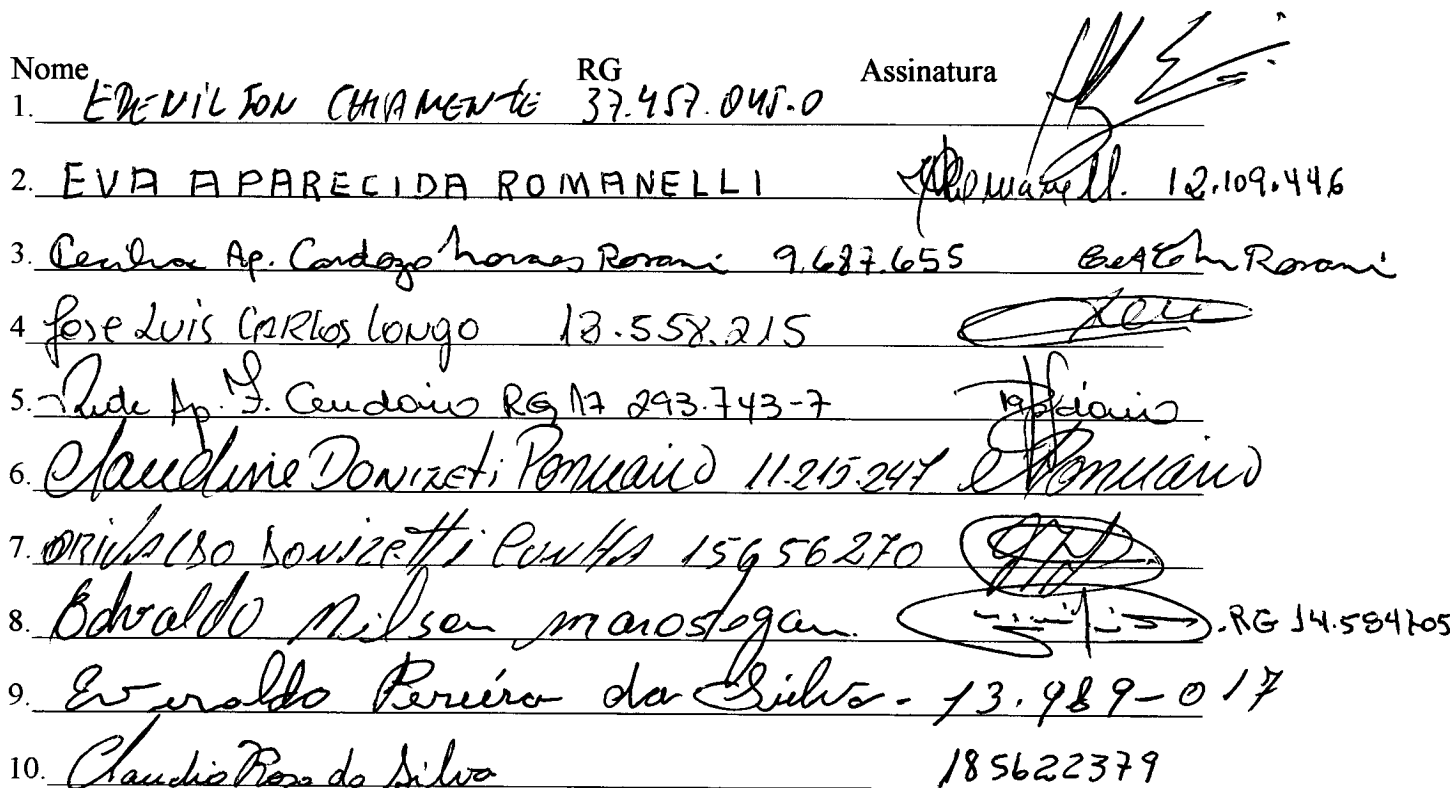 Nome RG Assinatura
1. EDENILSON CHIAMENTE 37.457.045-0
2. EVA APARECIDA ROMANELLI Romanelli. 12.109.446
3. Ap. Cardozo Moraes Rosani 9.687.655 Rosani
4 Jose Luis CARLos Longo 13.558.215
5. Ap. F. Candoio RG 17 293.743-7
6. Claudine Donizeti 11.215.247
7. ORIVALDO DONIZETTI CUNHA 15656270
8. Edvaldo Nilson marostegan. . RG 14.584705
9. Everaldo Pereira da Silva - 13.989-017
10. Claudio Rosa da Silva 185622379